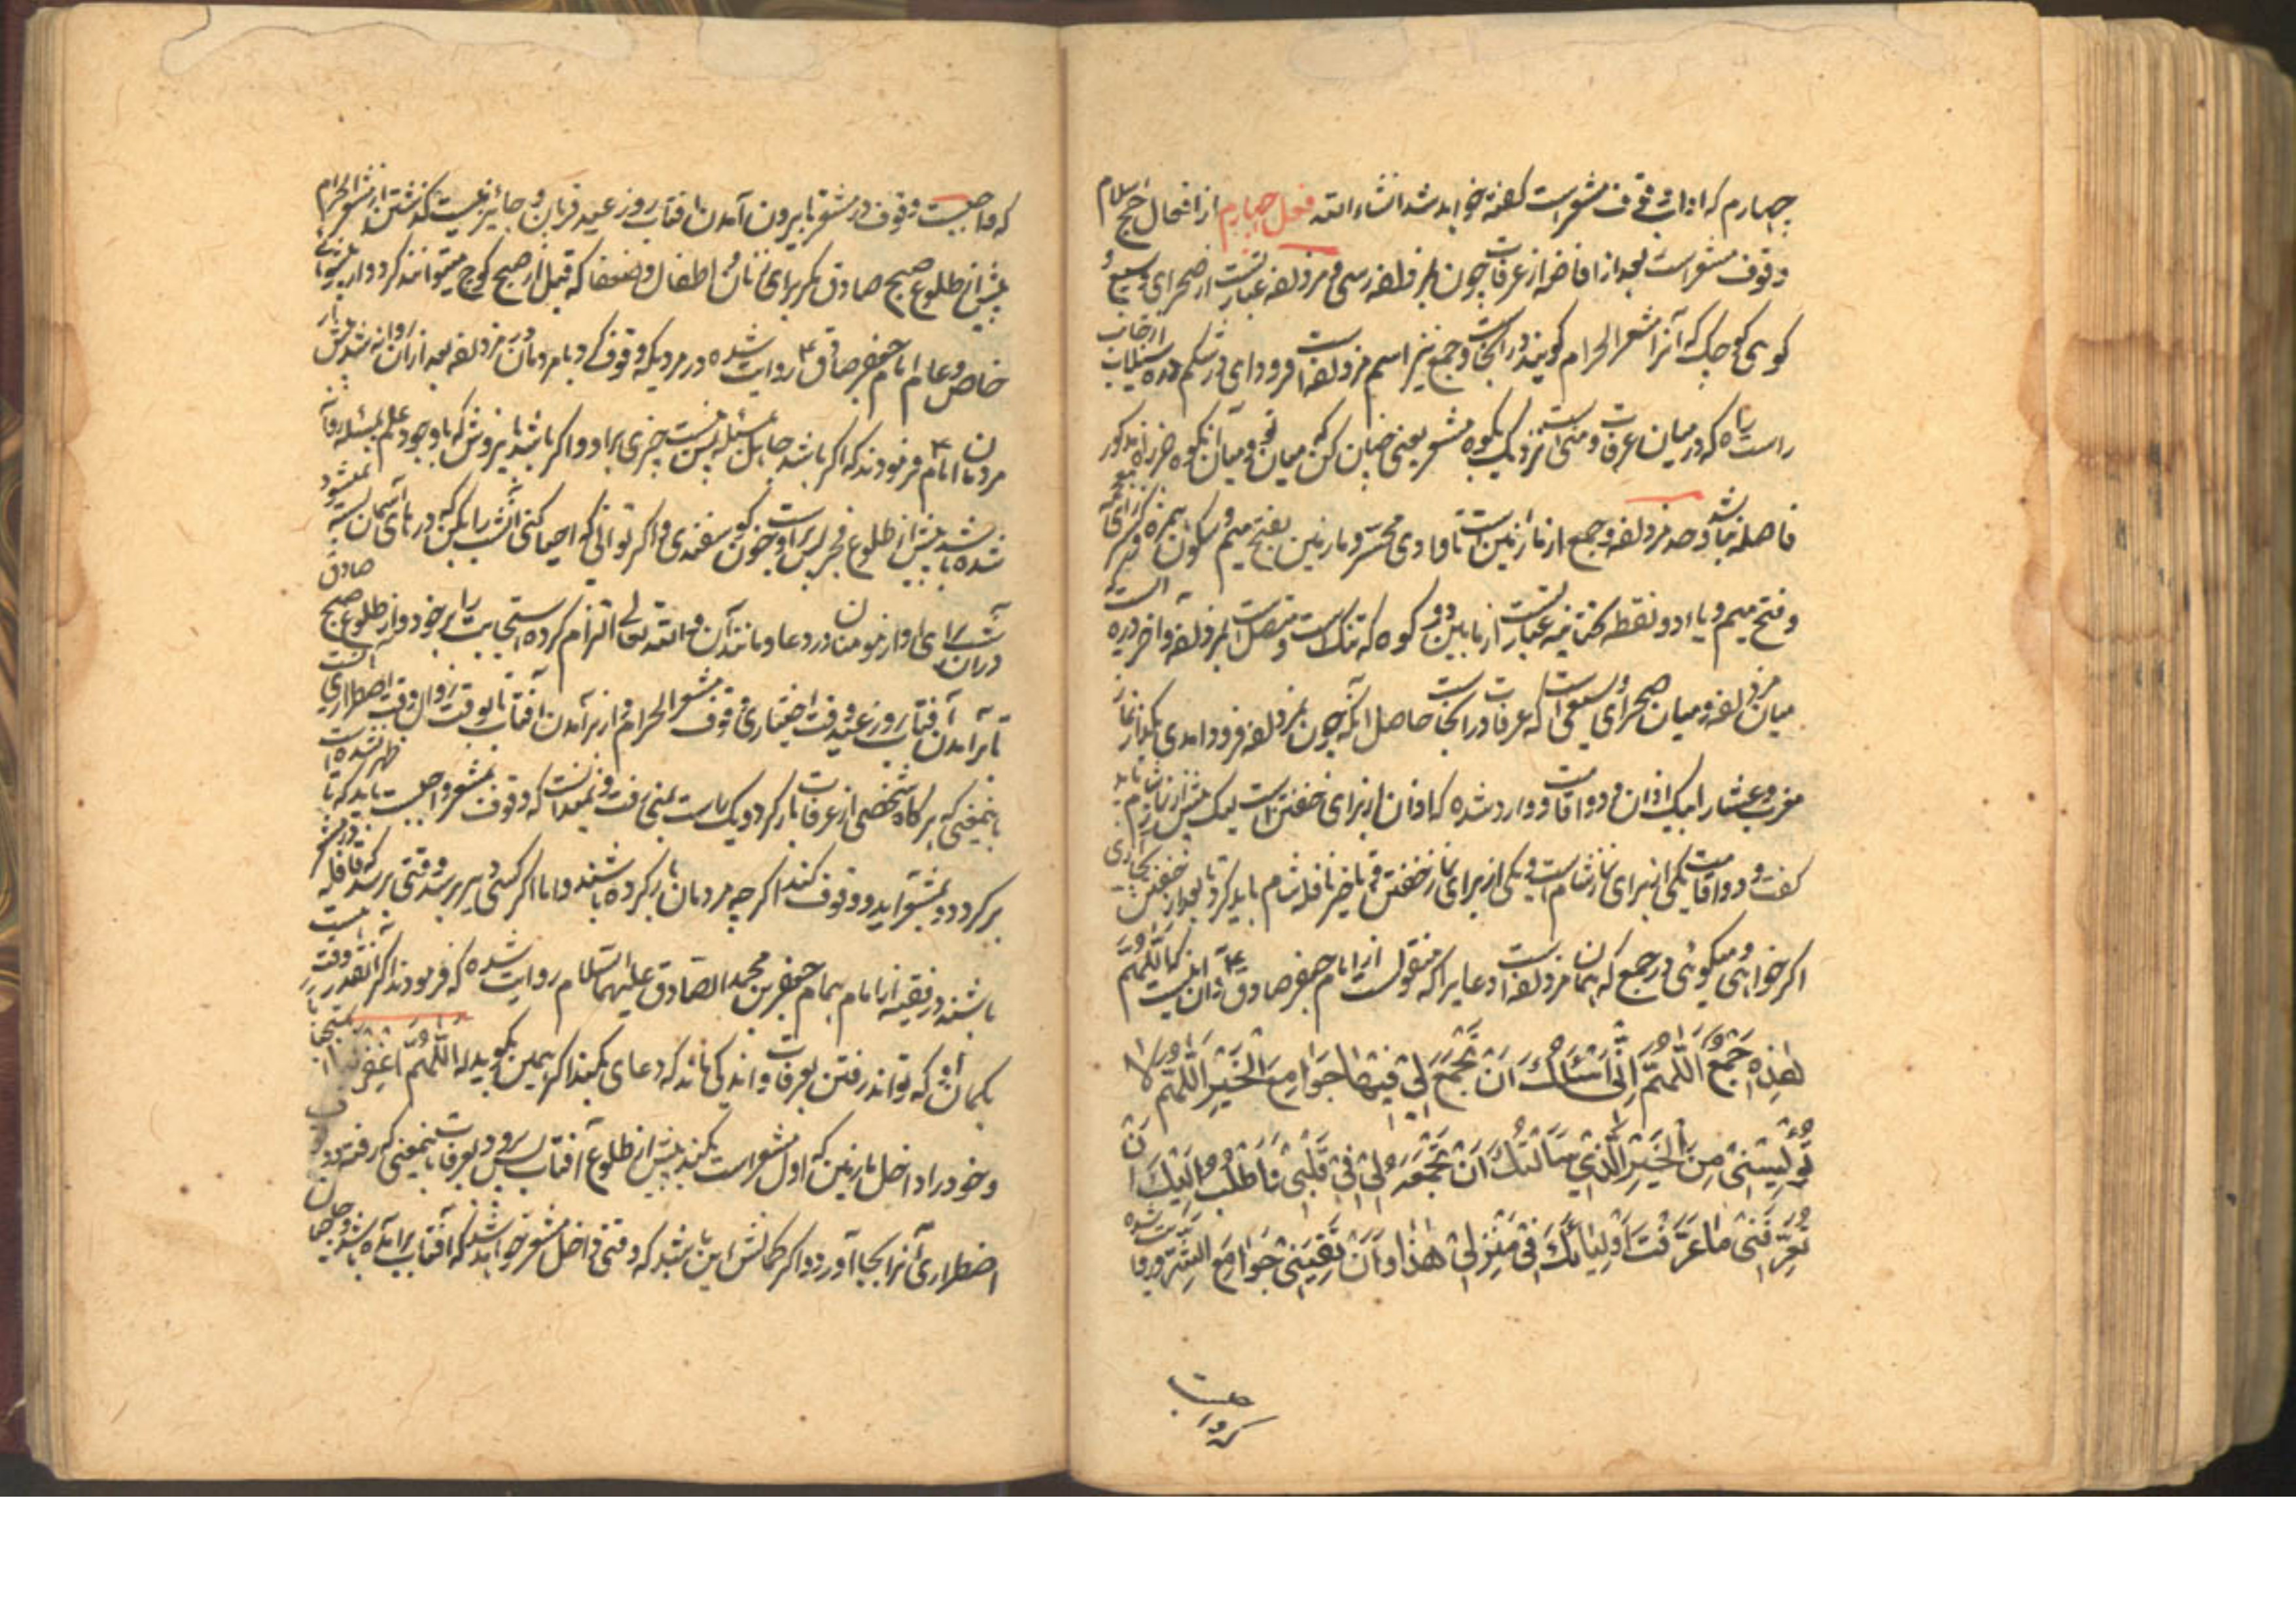 چهارم که اداب وقوف مشعر است گفته خواهد شد انشاء الله فعل چهارم از افعال حج اسلام
وقوف مشعر است بعد از افاضه از عرفات چون بمزدلفه رسی و مزدلفه عبارتست از صحرای وسیع و
کوهی کوچک که آنرا مشعر الحرام گویند در آنجاست و جمع نیز اسم مزدلفه است فرود ای در شکم دره از جانب
راست راه که در میان عرفات و منی است نزدیک بکوه مشعر یعنی چنان کن که میان تو و میان آنکوه
فاصله نباشد وحد مزدلفه و جمع از مازمین است تا وادی محسر و مازمین بفتح میم و سکون همزه و کسر زای
و فتح میم و یاء دو نقطه تحتانیه عبارتست از مابین دو کوه که تنک است و متصل است بمزدلفه و
میان مزدلفه و میان صحرای وسیعی است که عرفات در آنجاست حاصل آنکه چون بمزدلفه فرود امدی بگذار نماز
مغرب و عشا را بیک اذان و دو اقامت و وارد شده که اذان از برای خفتن است لیک پیش از نماز شام باید
گفت و دو اقامت یکی از برای نماز شام است و یکی از برای نماز خفتن و تاخیر نافله شام باید کرد تا بعد از خفتن
اگر خواهی و میگوئی در جمع که همان مزدلفه است دعایرا که منقول است از امام جعفر صادق ع و آن اینست که اللهم
هذه جمع اللهم انی اسئلک ان تجمع لی فیها جوامع الخیر اللهم لا
تویسنی من الخیر الذی سالتک ان تجمعه لی فی قلبی ثم اطلب الیک ان
تعرفنی ما عرفت اولیائک فی منزلی هذا و ان تقینی جوامع الشر و روایت شده
که واجبست
که واجبست وقوف در مشعر تا بیرون آمدن آفتاب روز عید قربان و جائز نیست گذشتن از مشعر الحرام
پیش از طلوع صبح صادق مگر برای زنان و اطفال و ضعفا که قبل از صبح کوچ میتوانند کرد و از پیشوای
خاص و عام امام جعفر صادق ع روایت شده در مردیکه وقوف کند با مردمان در مزدلفه بعد از آن روانه شد پیش از
مردمان امام ع فرمودند که اگر باشد جاهل مسئله پس نیست چیزی بر او و اگر باشد با وجود علم بمسئله روانه
شده باشد پیش از طلوع فجر پس بر اوست خون گوسفندی و اگر توانی که احیا کنی آنشب را بکن که درهای آسمان بسته نمیشود
در آن شب برای اواز مومنان در دعا و مانند آن و الله تعالی التزام کرده استجابت را بر خود و از طلوع صبح صادق
تا برآمدن آفتاب روز عید وقت اختیاری وقوف مشعر الحرام است و از برآمدن آفتاب تا بوقت زوال وقت اضطراری است
باینمعنی که هرگاه شخصی از عرفات بار کرد و یک راست بمنی رفت و نمیدانست که وقوف بمشعر واجبست باید که تا ظهر نشده است
برگردد و بمشعر آید و وقوف کند اگر چه مردمان بار کرده باشند و اما اگر کسی دیر برسد و وقتی برسد که قافله در مشعر
باشند در فقیه از امام همام جعفر بن محمد الصادق علیهما السلام روایت شده که فرمودند اگر آنقدر وقت هست
بگمان او که تواند رفتن بعرفات و اندکی ماند که دعای بکند اگر همین بگوید که اللهم اغفر لی
و خود را داخل مازمین که اول مشعر است بکند پیش از طلوع آفتاب پس برود بعرفات باینمعنی که رفته وقوف
اضطراری آنرا بجا آورد و اگر گمانش این باشد که وقتی داخل مشعر خواهد شد که آفتاب برآمده باشد